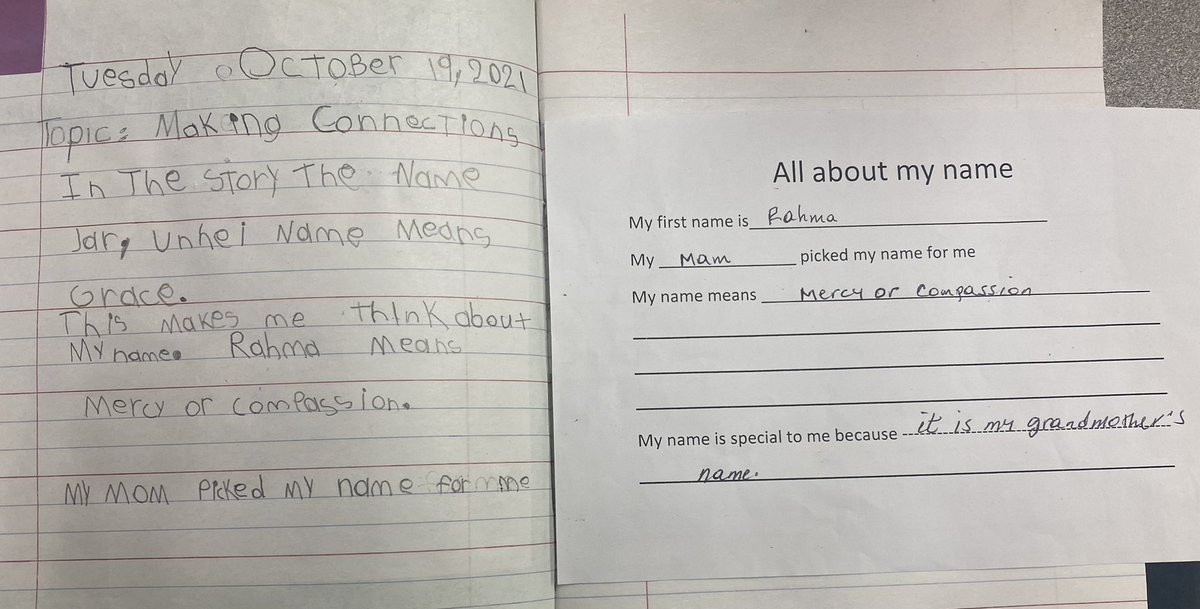 Tuesday October 19, 2021
Topic: Making Connections
In The Story The Name
Jar, Unhei Name Means
Grace.
This Makes me think about
My name. Rahma Means
Mercy or compassion.
My Mom Picked My name for me
All about my name
My first name is Rahma
My Mam picked my name for me
My name means Mercy or Compassion
My name is special to me because it is my grandmother's
name.